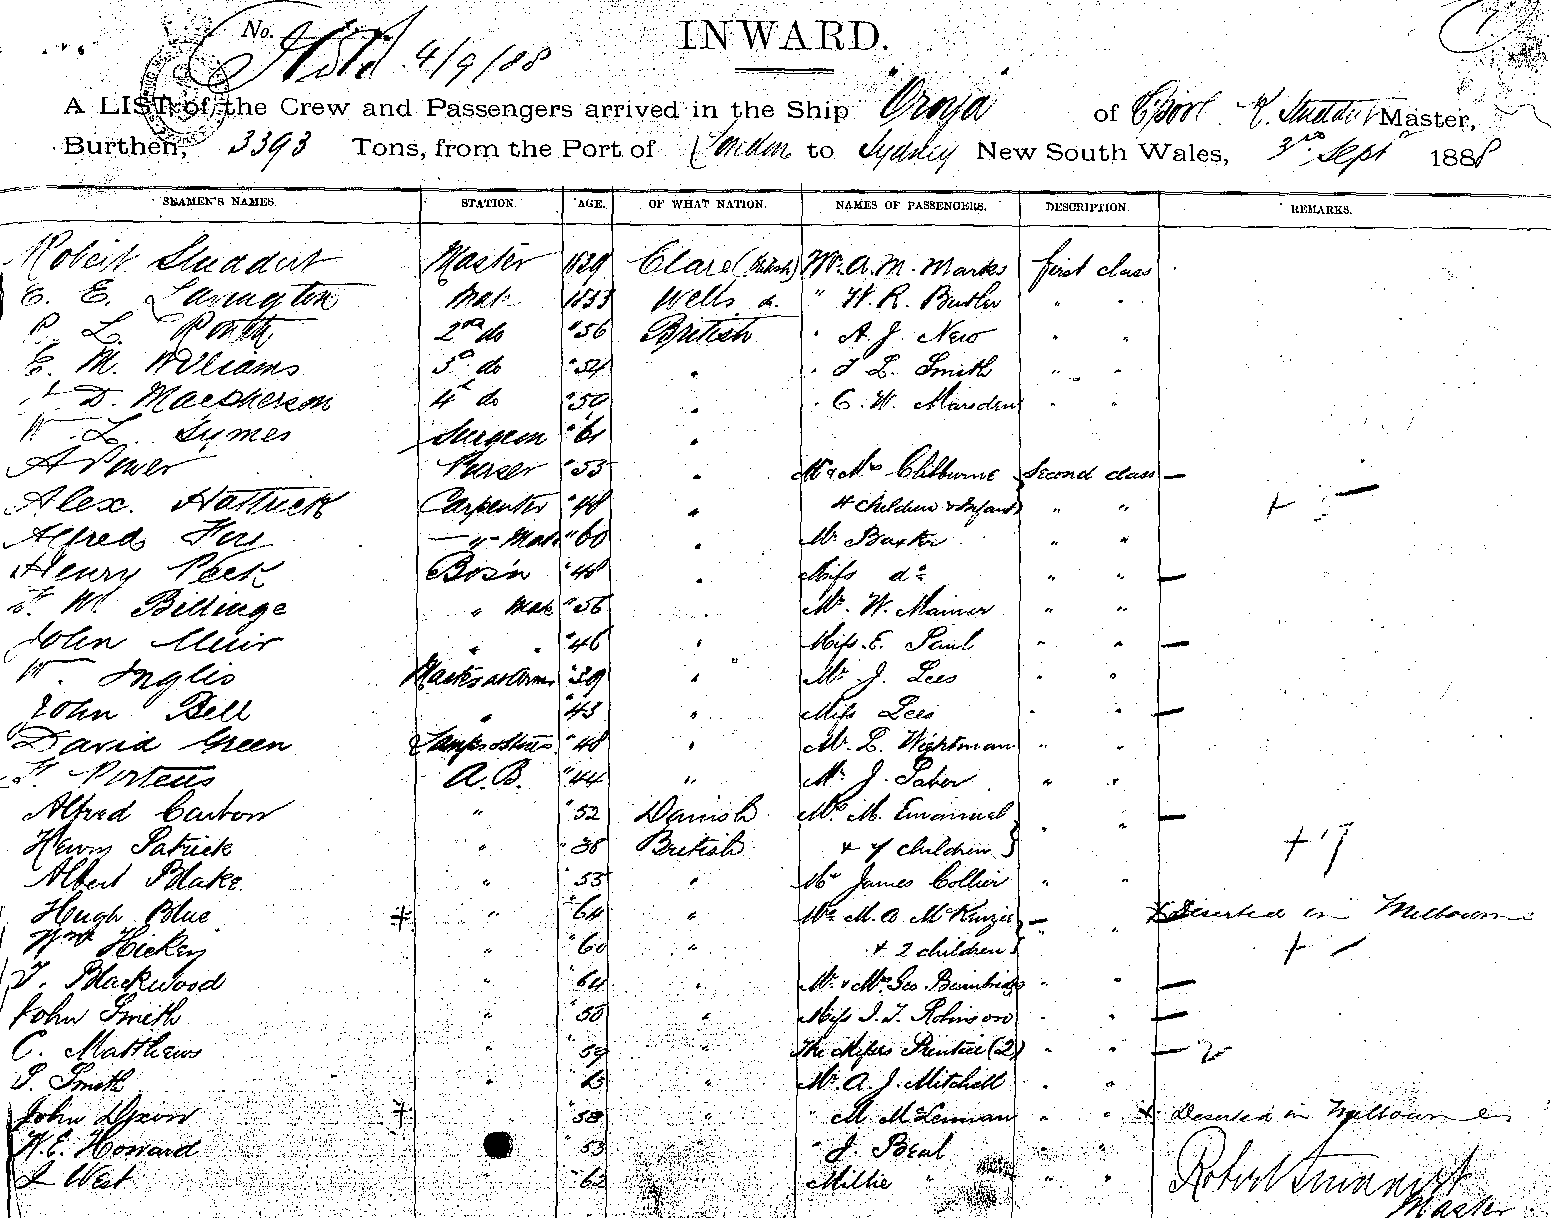 No. 4/9/88
INWARD.
A LIST of the Crew and Passengers arrived in the Ship "Oroya" of L'pool R. Studdert Master,
Burthen, 3393 Tons, from the Port of London to Sydney New South Wales, 3rd Sept 1888
SEAMEN'S NAMES. STATION. AGE. OF WHAT NATION. NAMES OF PASSENGERS. DESCRIPTION. REMARKS.
Robert Studdert Master 1839 Clare (British) Mr. A. M. Marks first class
E. E. Lavington Mate 1853 Wells " W. R. Butler " "
P. L. "56 British " A. J. New " "
E. M. Williams 3rd do "54 " " L. Smith " "
D. Macpherson 4th do "50 " " C. W. Marsden " "
W. L. Symes Surgeon "61 "
A Power Purser "53 " Mr & Mrs Clibburne Second class —
Alex. Hattrick Carpenter "48 " 4 children & Infant } " " +
Alfred — " — Mate "60 " Mr Baxter " "
Henry Peek Bos'n "48 " Miss do " " —
F. W. Billinge " Mate "56 " Mr. W. Mainer " "
John Muir " " "46 " Miss E. Paul " " —
W. Inglis Masts at Arms "39 " Mr J. Lees " "
John Bell " "43 " Miss Lees " " —
David Green Lamps & Stores "48 " Mr. L. Wightman " "
F. Porteus A.B. "44 " Mr J. " "
Alfred Carbon " "52 Danish Mrs M. Emanuel " " —
Henry Patrick " "38 British & 7 children } + 7
Albert Blake " 53 " Mr James Collier " "
Hugh Blue ‡ " "64 " Mrs M. A. McKenzie — " " ‡ Deserted in Melbourne
Wm Hickey " "60 " & 2 children } +
T. Blackwood " 64 " Mr & Mrs Geo Bainbridge " " —
John Smith " "58 " Miss I. T. Robinson " " —
C. Matthews " "59 " The Misses Prentice (2) " " — 2
Smith " " Mr. A. J. Mitchell " "
John Dixon ‡ " "58 " " M McLennan " " ‡ Deserted in Melbourne
W. E. Howard 53 " " J. Beal " "
West "62 " Millie " " "
Robert Studdert
Master